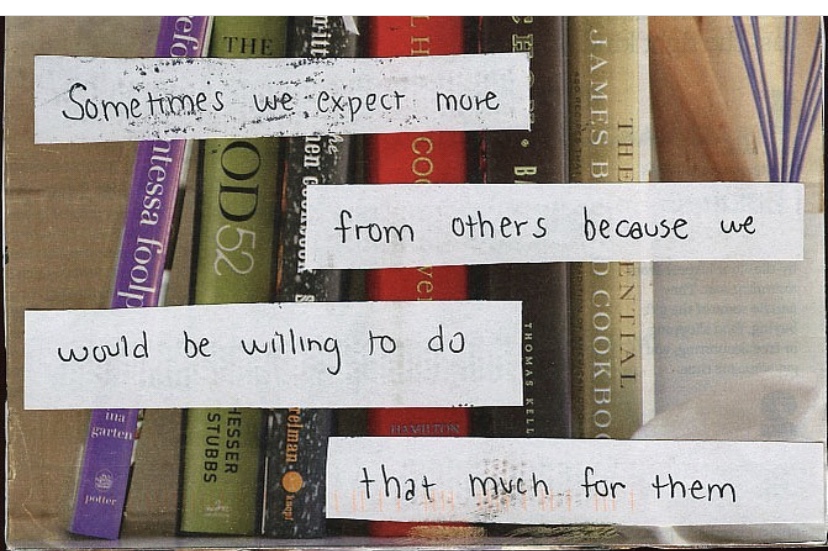 Sometimes we expect more
from others because we
would be willing to do
that much for them
THE
OD 52
HESSER
STUBBS
ntessa foolp
ina
garten
potter
hen cookbook
relman
knopf
L H
COO
HAMILTON
THOMAS KELL
JAMES B
D COOKBOO
THE
ENTIAL